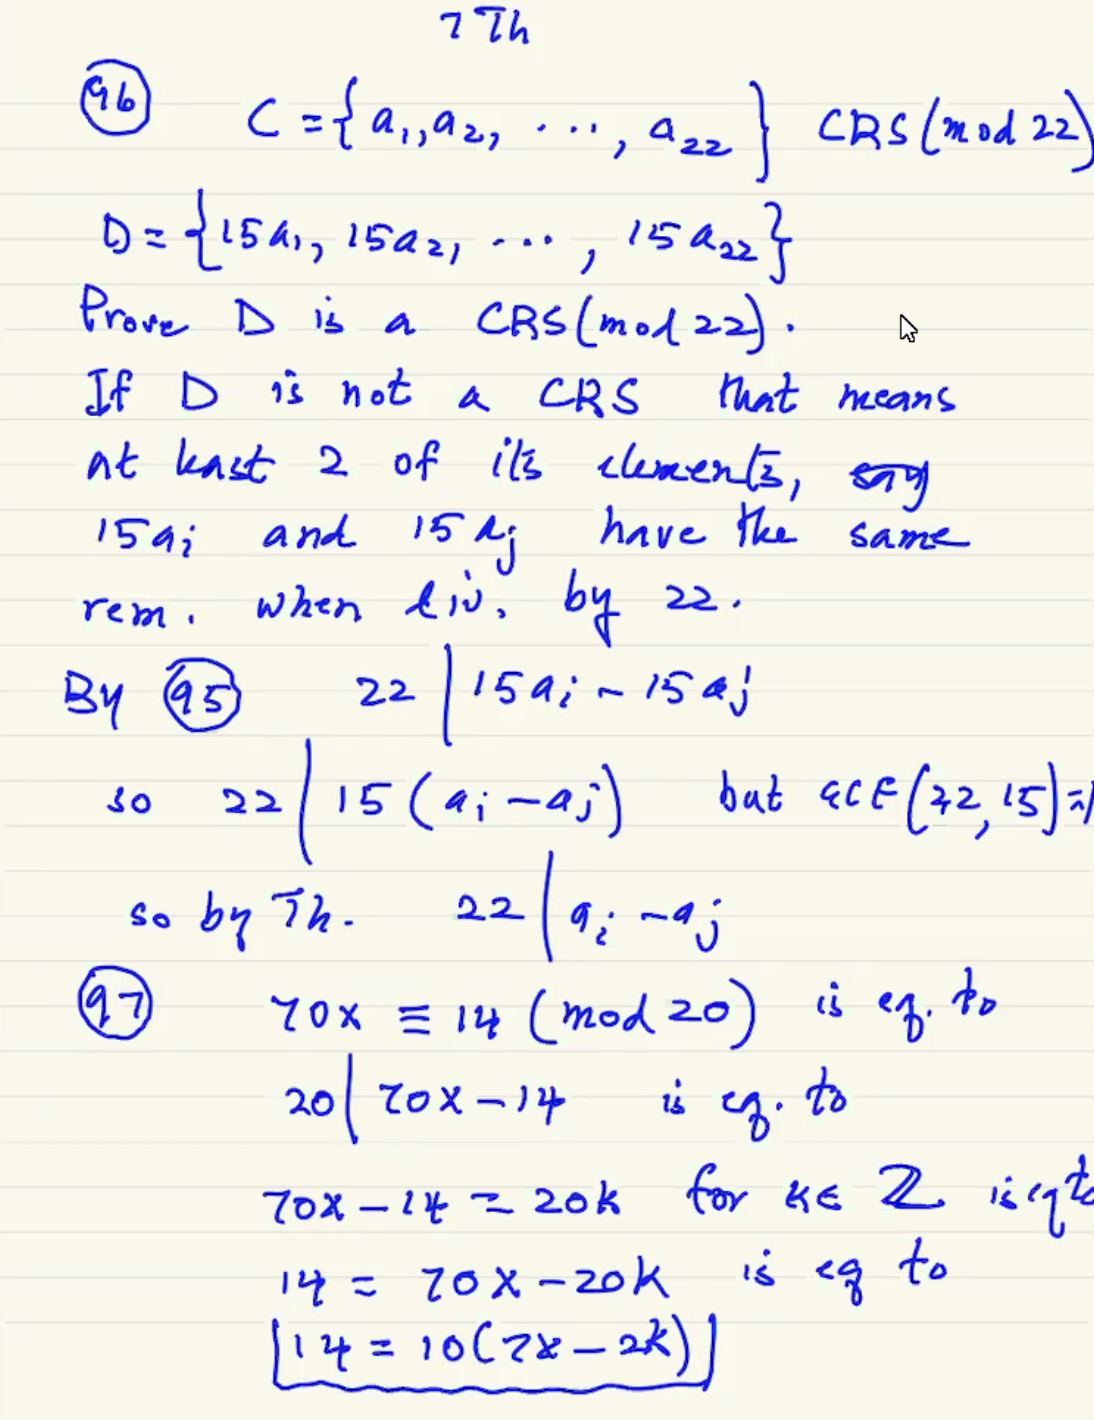 7 Th
96 C = {a₁, a₂, ..., a₂₂} CRS (mod 22)
D = {15a₁, 15a₂, ..., 15a₂₂}
Prove D is a CRS (mod 22).
If D is not a CRS that means
at least 2 of its elements, say
15aᵢ and 15aⱼ have the same
rem. when div. by 22.
By 95 22 | 15aᵢ - 15aⱼ
so 22 | 15(aᵢ - aⱼ) but GCF(22, 15) = 1
so by Th. 22 | aᵢ - aⱼ
97 70x ≡ 14 (mod 20) is eq. to
20 | 70x - 14 is eq. to
70x - 14 = 20k for k ∈ ℤ is eq to
14 = 70x - 20k is eq to
14 = 10(7x - 2k)